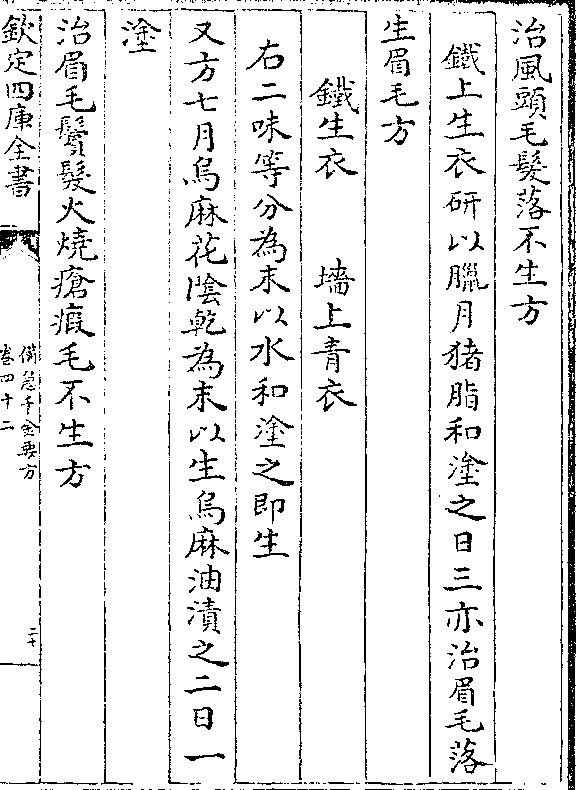 治風頭毛髮落不生方
鐵上生衣研以臘月猪脂和塗之日三亦治眉毛落
生眉毛方
鐵生衣　墻上青衣
右二味等分為末以水和塗之即生
又方七月烏麻花陰乾為末以生烏麻油漬之二日一
塗
治眉毛鬢髮火燒瘡瘢毛不生方
欽定四庫全書
備急千金要方
卷四十二
二十